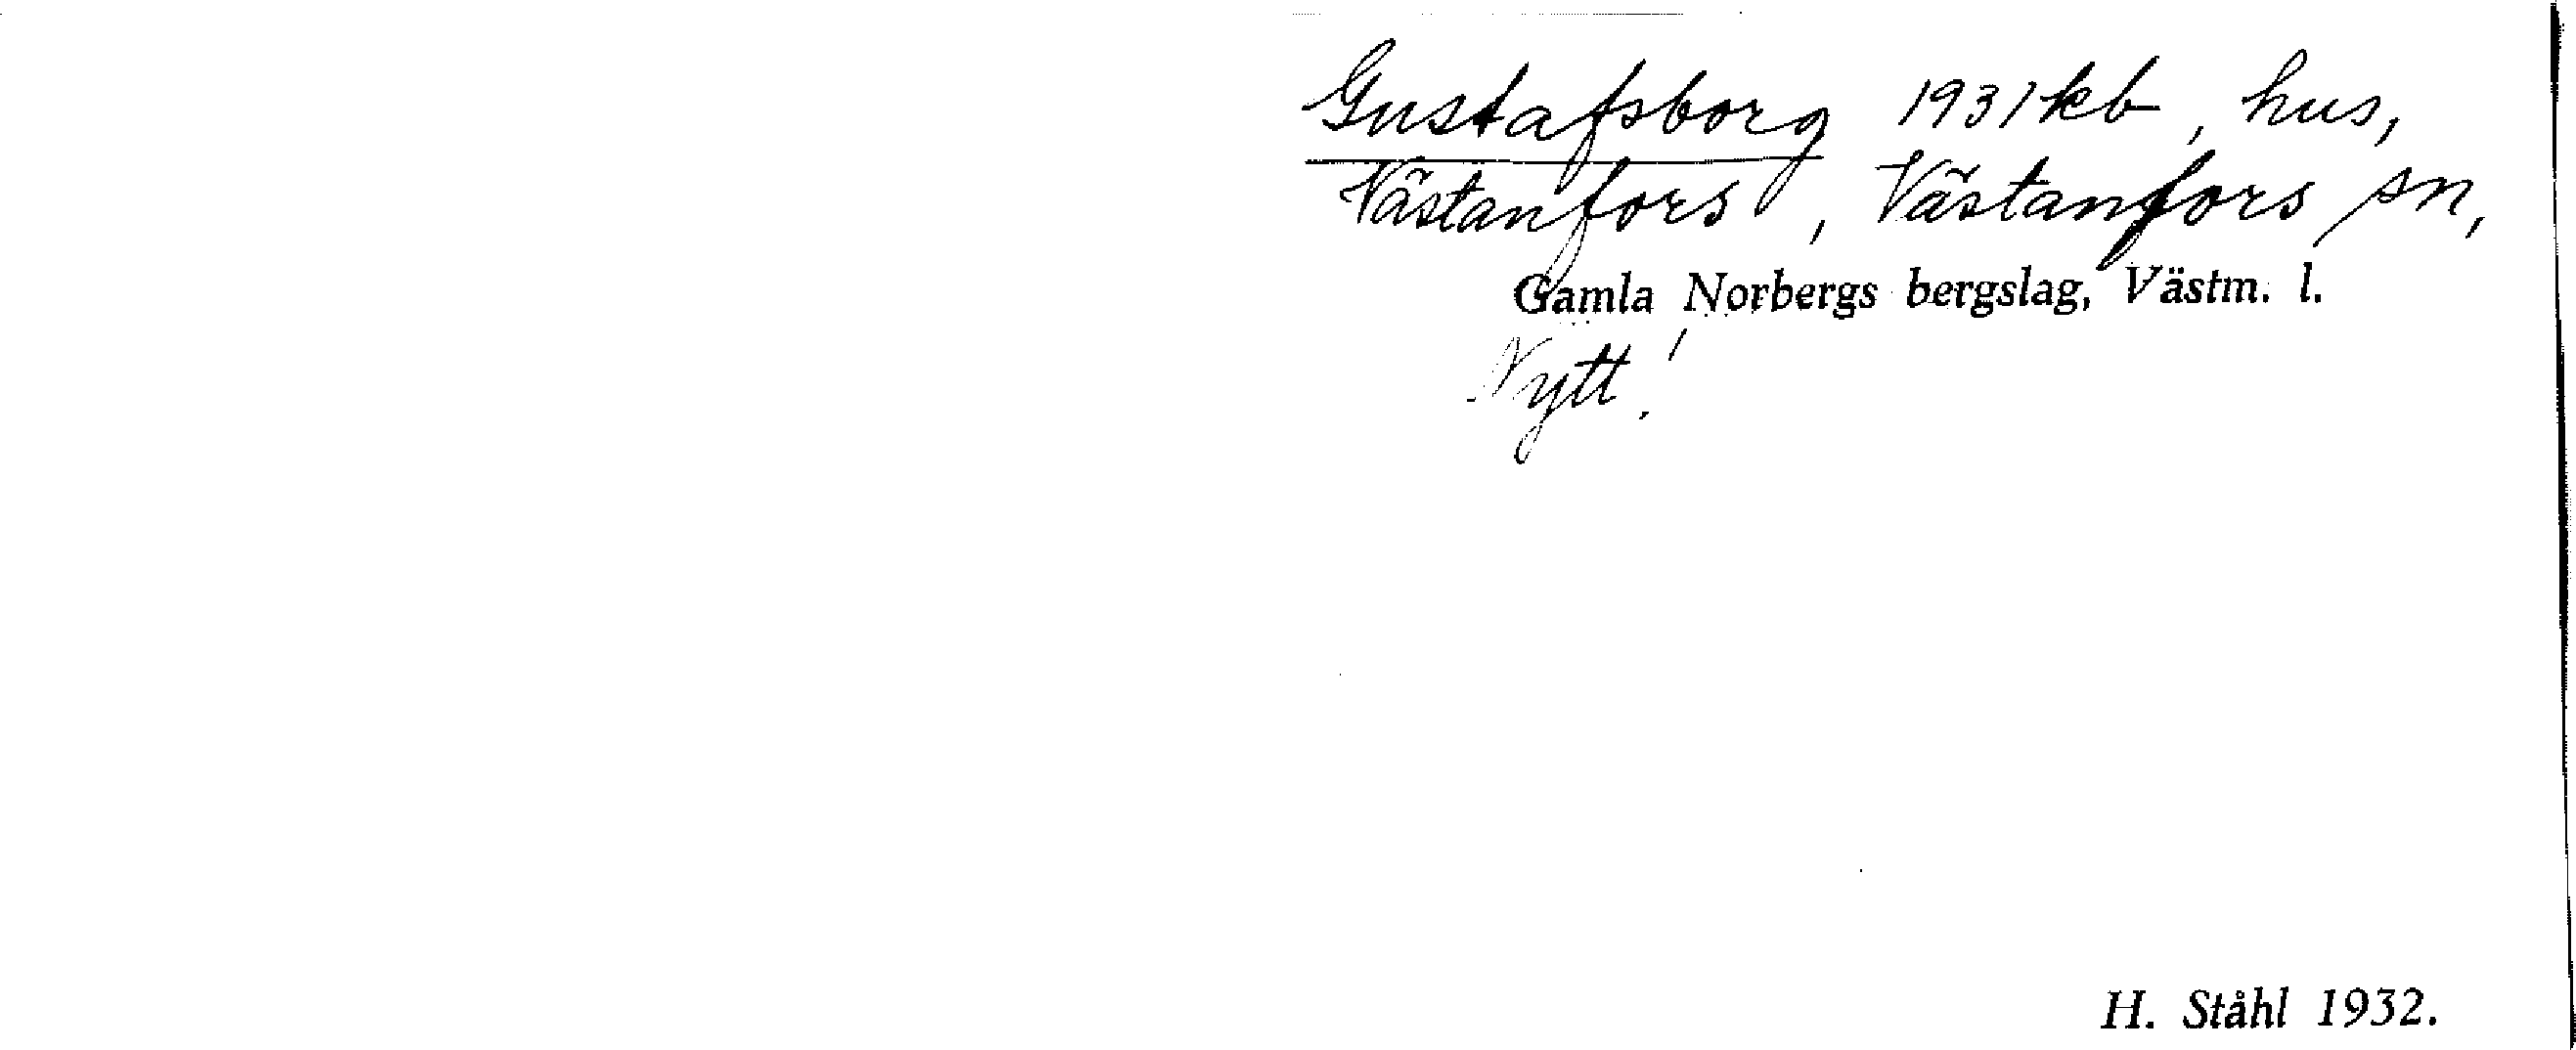 Gustafsborg 1931 kb, hus,
Västanfors, Västanfors sn,
Gamla Norbergs bergslag, Västm. l.
Nytt!
H. Ståhl 1932.